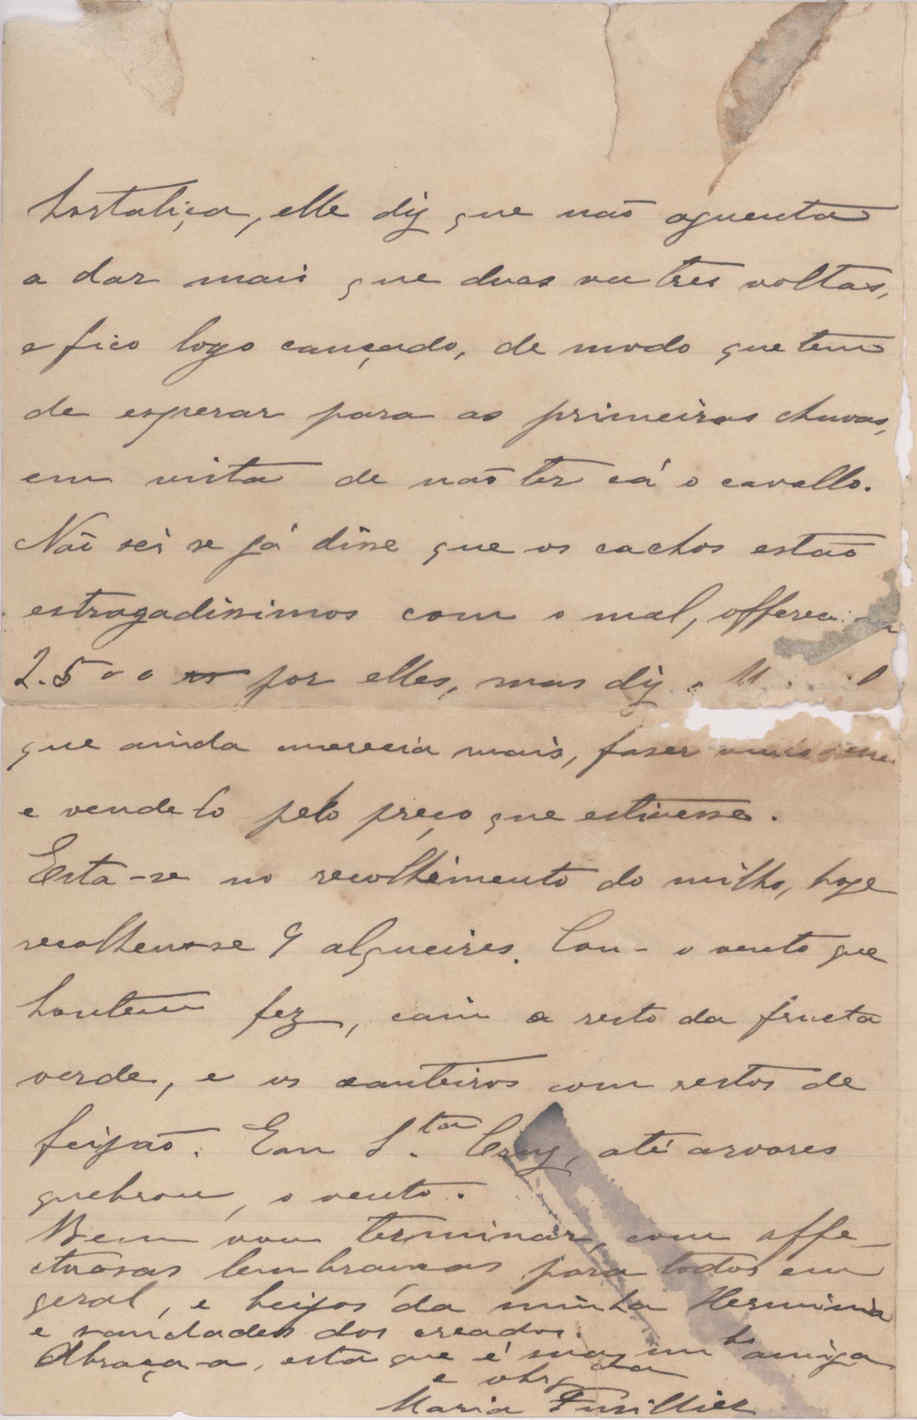 hortaliça, elle diz que não aguenta
a dar mais que duas ou tres voltas,
e fica logo cançado, de modo que tem
de esperar para as primeiras chuvas,
em vista de não ter cá o cavallo.
Não sei se já disse que os cachos estão
estragadissimos com o mal,
2.500 rs por elles, mas diz
que ainda merecia mais, fazer
e vendelo pelo preço que estivesse.
Esta-se no recolhimento do milho, hoje
recolheu-se 9 alqueires. Com o vento que
hontem fez, caiu o resto da fructa
verde, e os canteiros com restos de
feijão. Em S.ta Cruz, até arvores
quebrou, o vento.
Bem vou terminar, com affe-
ctuosas lembranças para todos em
geral, e beijos da minha Herminia
e saudades dos creados.
Abraça-a, esta que é sua m.to amiga
e obrg.da
Maria